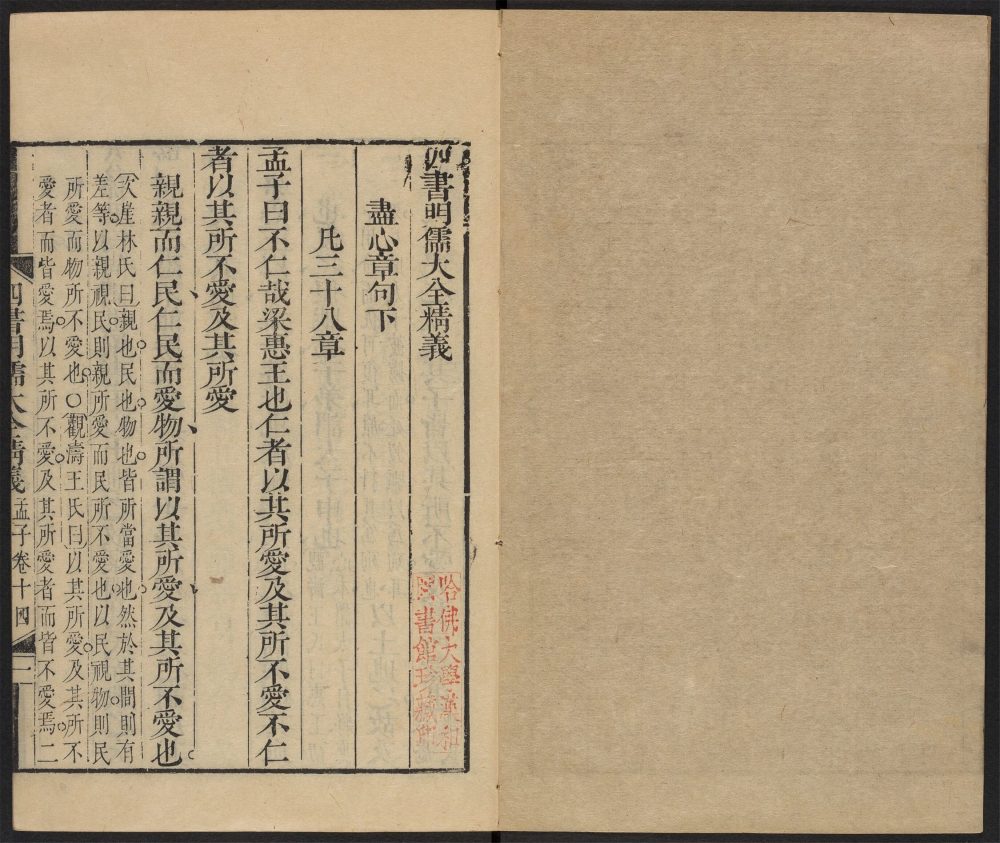 四書明儒大全精義
盡心章句下
凡三十八章
孟子曰不仁哉梁惠王也仁者以其所愛及其所不愛不仁
者以其所不愛及其所愛
親親而仁民仁民而愛物所謂以其所愛及其所不愛也
次崖林氏曰親也民也物也皆所當愛也然於其間則有
差等以親視民則親所愛而民所不愛也以民視物則民
所愛而物所不愛也○觀濤王氏曰以其所愛及其所不
愛者而皆愛焉以其所不愛及其所愛者而皆不愛焉二
四書明儒大全精義 孟子卷十四 一
哈佛大學漢和
圖書館珍藏印